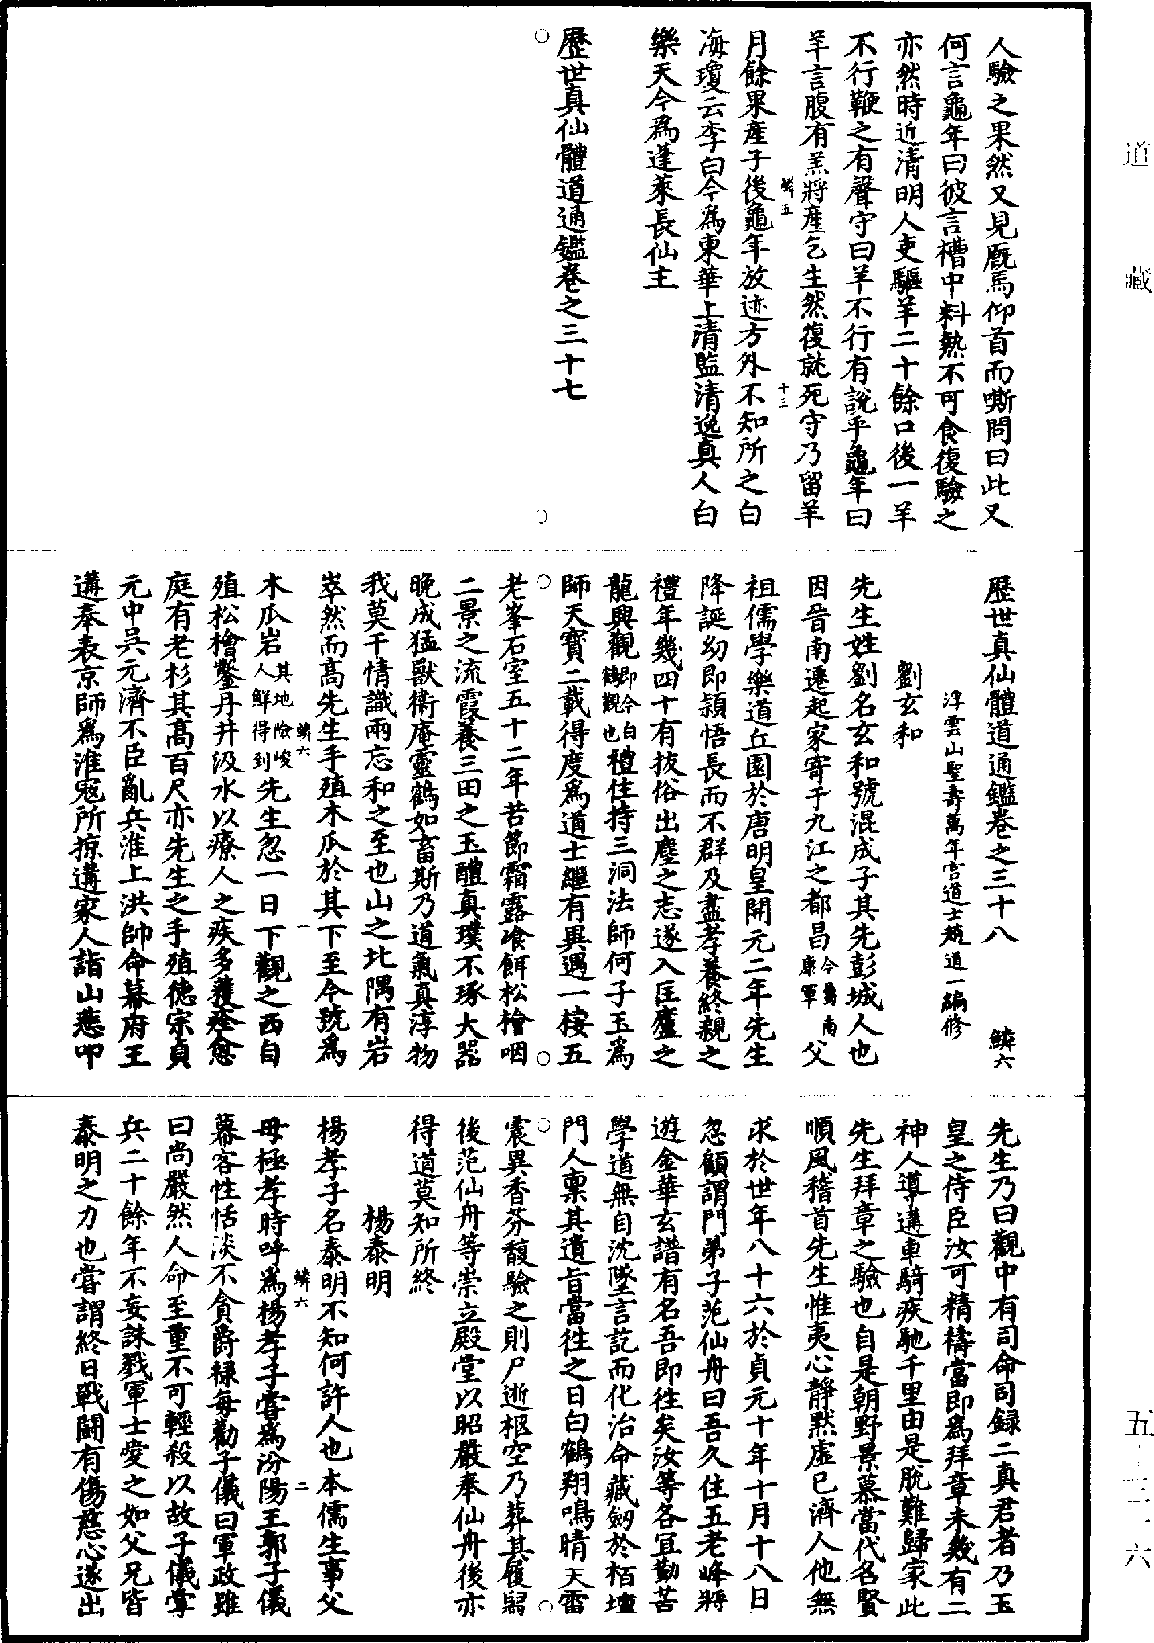 道藏
人驗之果然又見厩馬仰首而嘶問曰此又
何言龜年曰彼言槽中料熱不可食復驗之
亦然時近清明人吏驅羊二十餘口後一羊
不行鞭之有聲守曰羊不行有說乎龜年曰
羊言腹有羔將產乞生然復就死守乃留羊
鱗五 十三
月餘果產子後龜年放迹方外不知所之白
海瓊云李白今爲東華上清監清逸真人白
樂天今爲蓬萊長仙主
歷世真仙體道通鑑卷之三十七
歷世真仙體道通鑑卷之三十八 鱗六
浮雲山聖壽萬年宮道士趙道一編修
劉玄和
先生姓劉名玄和號混成子其先彭城人也
因晉南遷起家寄于九江之都昌今屬南康軍父
祖儒學樂道丘園於唐明皇開元二年先生
降誕幼即穎悟長而不群及盡孝養終親之
禮年幾四十有拔俗出塵之志遂入匡廬之
龍興觀即今白鶴觀也禮住持三洞法師何子玉爲
師天寶二載得度爲道士繼有異遇一棲五
老峯石室五十二年苦節霜露飡餌松檜咽
二景之流霞養三田之玉醴真璞不琢大器
晚成猛獸衛庵靈鶴如畜斯乃道氣真淳物
我莫干情識兩忘和之至也山之北隅有岩
崒然而高先生手殖木瓜於其下至今號爲
鱗六 一
木瓜岩其地險峻人鮮得到先生忽一日下觀之西自
殖松檜鑿丹井汲水以療人之疾多獲痊愈
庭有老杉其高百尺亦先生之手殖德宗貞
元中吳元濟不臣亂兵淮上洪帥命幕府王
遘奉表京師爲淮寇所掠遘家人詣山悲叩
先生乃曰觀中有司命司録二真君者乃玉
皇之侍臣汝可精禱當即爲拜章未幾有二
神人導遘車騎疾馳千里由是脫難歸家此
先生拜章之驗也自是朝野景慕當代名賢
順風稽首先生惟夷心靜默虛已濟人他無
求於世年八十六於貞元十年十月十八日
忽顧謂門弟子范仙舟曰吾久住五老峰將
遊金華玄譜有名吾即往矣汝等各宜勤苦
學道無自沈墜言訖而化治命藏劒於栢壇
門人稟其遺旨當往之日白鶴翔鳴晴天雷
震異香芬馥驗之則尸逝柩空乃葬其履舄
後范仙舟等崇立殿堂以昭嚴奉仙舟後亦
得道莫知所終
楊泰明
楊孝子名泰明不知何許人也本儒生事父
鱗六 二
母極孝時呼爲楊孝子嘗爲汾陽王郭子儀
幕客性恬淡不貪爵祿每勸子儀曰軍政雖
曰尚嚴然人命至重不可輕殺以故子儀掌
兵二十餘年不妄誅戮軍士愛之如父兄皆
泰明之力也嘗謂終日戰鬬有傷慈心遂出